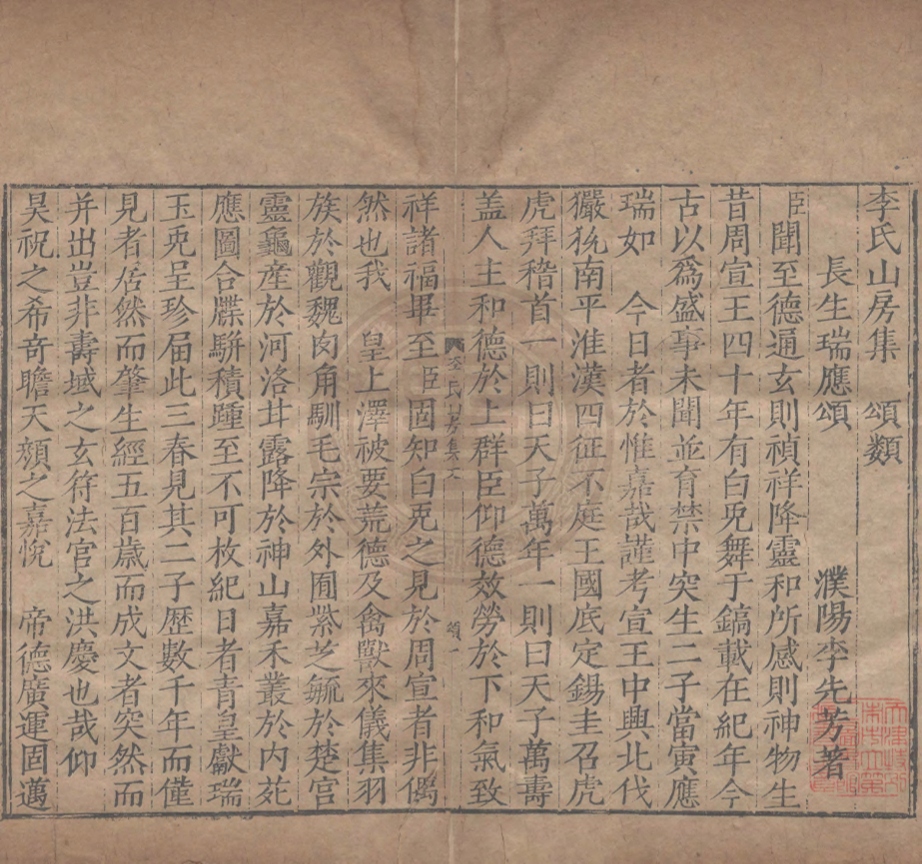 李氏山房集　頌類
長生瑞應頌　濮陽李先芳著
臣聞至德通玄則禎祥降靈和所感則神物生
昔周宣王四十年有白兕舞于鎬載在紀年今
古以爲盛事未聞並育禁中突生二子當寅應
瑞如　今日者於惟嘉哉謹考宣王中興北伐
玁狁南平淮漢四征不庭王國底定錫圭召虎
虎拜稽首一則曰天子萬年一則曰天子萬壽
盖人主和德於上群臣仰德效勞於下和氣致
李氏山房集文
頌一
祥諸福畢至臣固知白兕之見於周宣者非偶
然也我　皇上澤被要荒德及禽獸來儀集羽
族於觀魏肉角馴毛宗於外囿紫芝毓於楚宫
靈龜產於河洛甘露降於神山嘉禾叢於内苑
應圖合牒駢積踵至不可枚紀日者青皇獻瑞
玉兎呈珍届此三春見其二子歷數千年而僅
見者居然而肇生經五百歲而成文者突然而
并出豈非壽域之玄符法官之洪慶也哉仰
昊祝之希竒瞻天顔之嘉悅　帝德廣運固邁